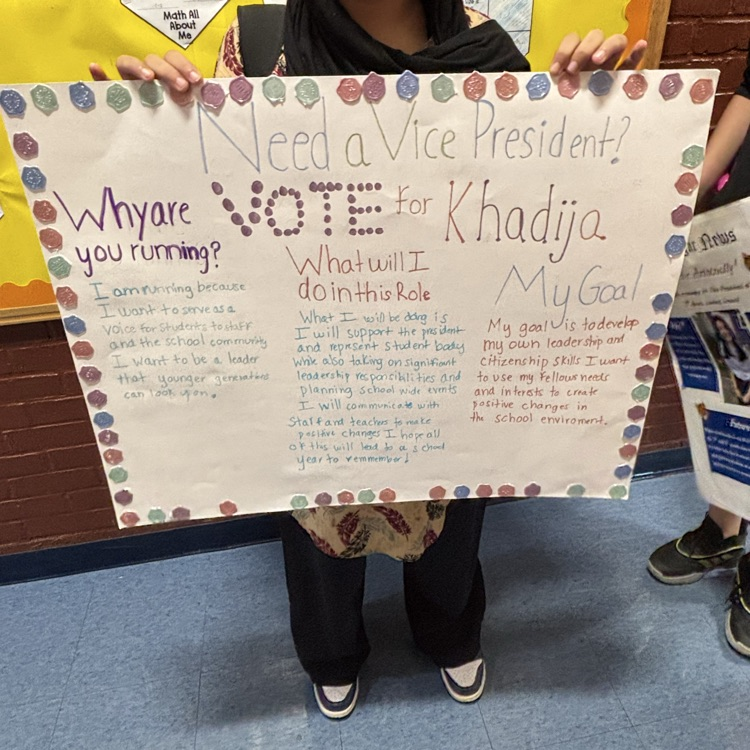 Math All
About
Me
Need a Vice President?
VOTE for Khadija
Why are
you running?
I am running because
I want to serve as a
voice for students to staff
and the school community
I want to be a leader
that younger generations
can look upon.
What will I
do in this Role
What I will be doing is
I will support the president
and represent student body
while also taking on significant
leadership responsibilities and
planning school wide events
I will communicate with
Staff and teachers to make
positive changes I hope all
of this will lead to a school
year to remmember!
My Goal
My goal is to develop
my own leadership and
citizenship skills I want
to use my fellows needs
and interests to create
positive changes in
the school enviroment.
News